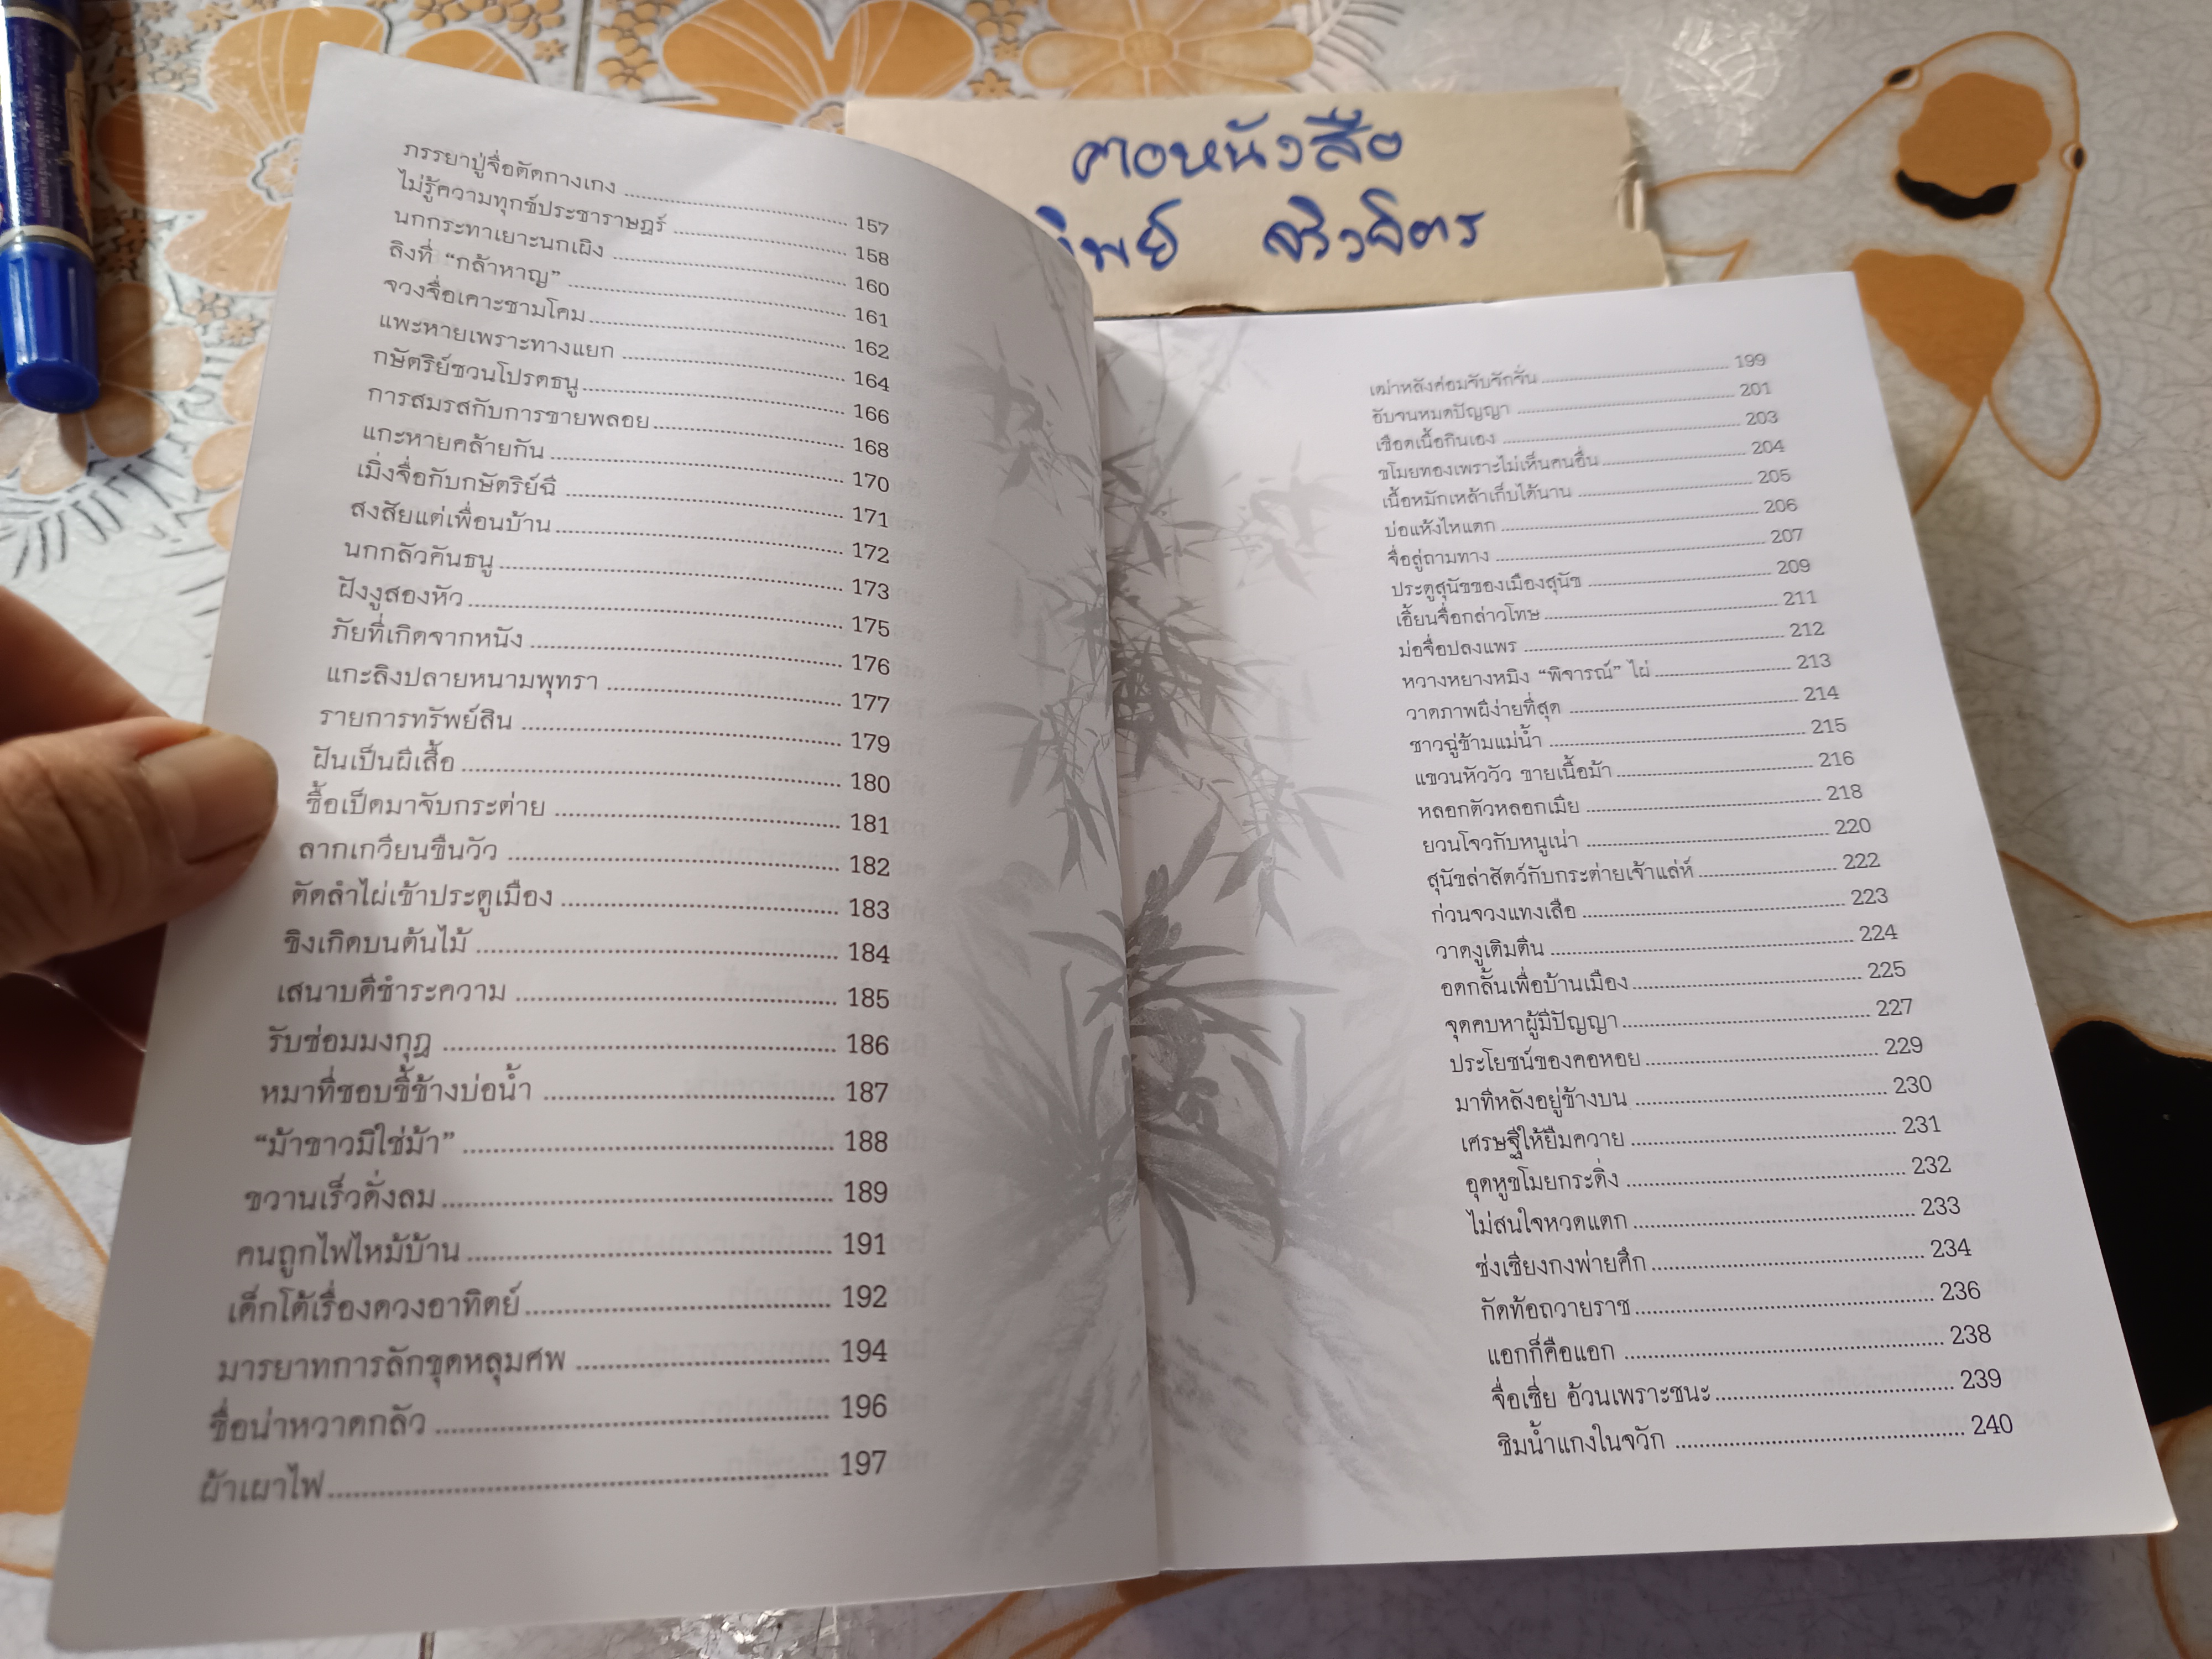 คอหนังสือ
ทิพย์ สริวจิตร
ภรรยาปู่จื่อตัดกางเกง ........ 157
ไม่รู้ความทุกข์ประชาราษฎร์ ........ 158
นกกระทาเยาะนกเผิง ........ 160
ลิงที่ “กล้าหาญ” ........ 161
จวงจื่อเคาะชามโคม ........ 162
แพะหายเพราะทางแยก ........ 164
กษัตริย์ซวนโปรดธนู ........ 166
การสมรสกับการขายพลอย ........ 168
แกะหายคล้ายกัน ........ 170
เมิ่งจื่อกับกษัตริย์ฉี ........ 171
สงสัยแต่เพื่อนบ้าน ........ 172
นกกลัวคันธนู ........ 173
ฝังงูสองหัว ........ 175
ภัยที่เกิดจากหนัง ........ 176
แกะลิงปลายหนามพุทรา ........ 177
รายการทรัพย์สิน ........ 179
ฝันเป็นผีเสื้อ ........ 180
ซื้อเป็ดมาจับกระต่าย ........ 181
ลากเกวียนขึ้นวัว ........ 182
ตัดลำไผ่เข้าประตูเมือง ........ 183
ขิงเกิดบนต้นไม้ ........ 184
เสนาบดีชำระความ ........ 185
รับซ่อมมงกุฎ ........ 186
หมาที่ชอบขี้ข้างบ่อน้ำ ........ 187
“ม้าขาวมิใช่ม้า” ........ 188
ขวานเร็วดั่งลม ........ 189
คนถูกไฟไหม้บ้าน ........ 191
เด็กโต้เรื่องดวงอาทิตย์ ........ 192
มารยาทการลักขุดหลุมศพ ........ 194
ชื่อน่าหวาดกลัว ........ 196
ผ้าเผาไฟ ........ 197
เฒ่าหลังค่อมจับจักจั่น ........ 199
อับจนหมดปัญญา ........ 201
เชือดเนื้อกินเอง ........ 203
ขโมยทองเพราะไม่เห็นคนอื่น ........ 204
เนื้อหมักเหล้าเก็บได้นาน ........ 205
บ่อแห้งไหแตก ........ 206
จื่อลู่ถามทาง ........ 207
ประตูสุนัขของเมืองสุนัข ........ 209
เอี้ยนจื่อกล่าวโทษ ........ 211
ม่อจื่อปลงแพร ........ 212
หวางหยางหมิง “พิจารณ์” ไผ่ ........ 213
วาดภาพผีง่ายที่สุด ........ 214
ชาวฉู่ข้ามแม่น้ำ ........ 215
แขวนหัววัว ขายเนื้อม้า ........ 216
หลอกตัวหลอกเมีย ........ 218
ยวนโจวกับหนูเน่า ........ 220
สุนัขล่าสัตว์กับกระต่ายเจ้าแล่ห์ ........ 222
ก่วนจวงแทงเสือ ........ 223
วาดงูเติมตีน ........ 224
อดกลั้นเพื่อบ้านเมือง ........ 225
จุดคบหาผู้มีปัญญา ........ 227
ประโยชน์ของคอหอย ........ 229
มาทีหลังอยู่ข้างบน ........ 230
เศรษฐีให้ยืมควาย ........ 231
อุดหูขโมยกระดิ่ง ........ 232
ไม่สนใจหวดแตก ........ 233
ซ่งเซียงกงพ่ายศึก ........ 234
กัดท้อถวายราช ........ 236
แอกก็คือแอก ........ 238
จื่อเซี่ย อ้วนเพราะชนะ ........ 239
ชิมน้ำแกงในจวัก ........ 240